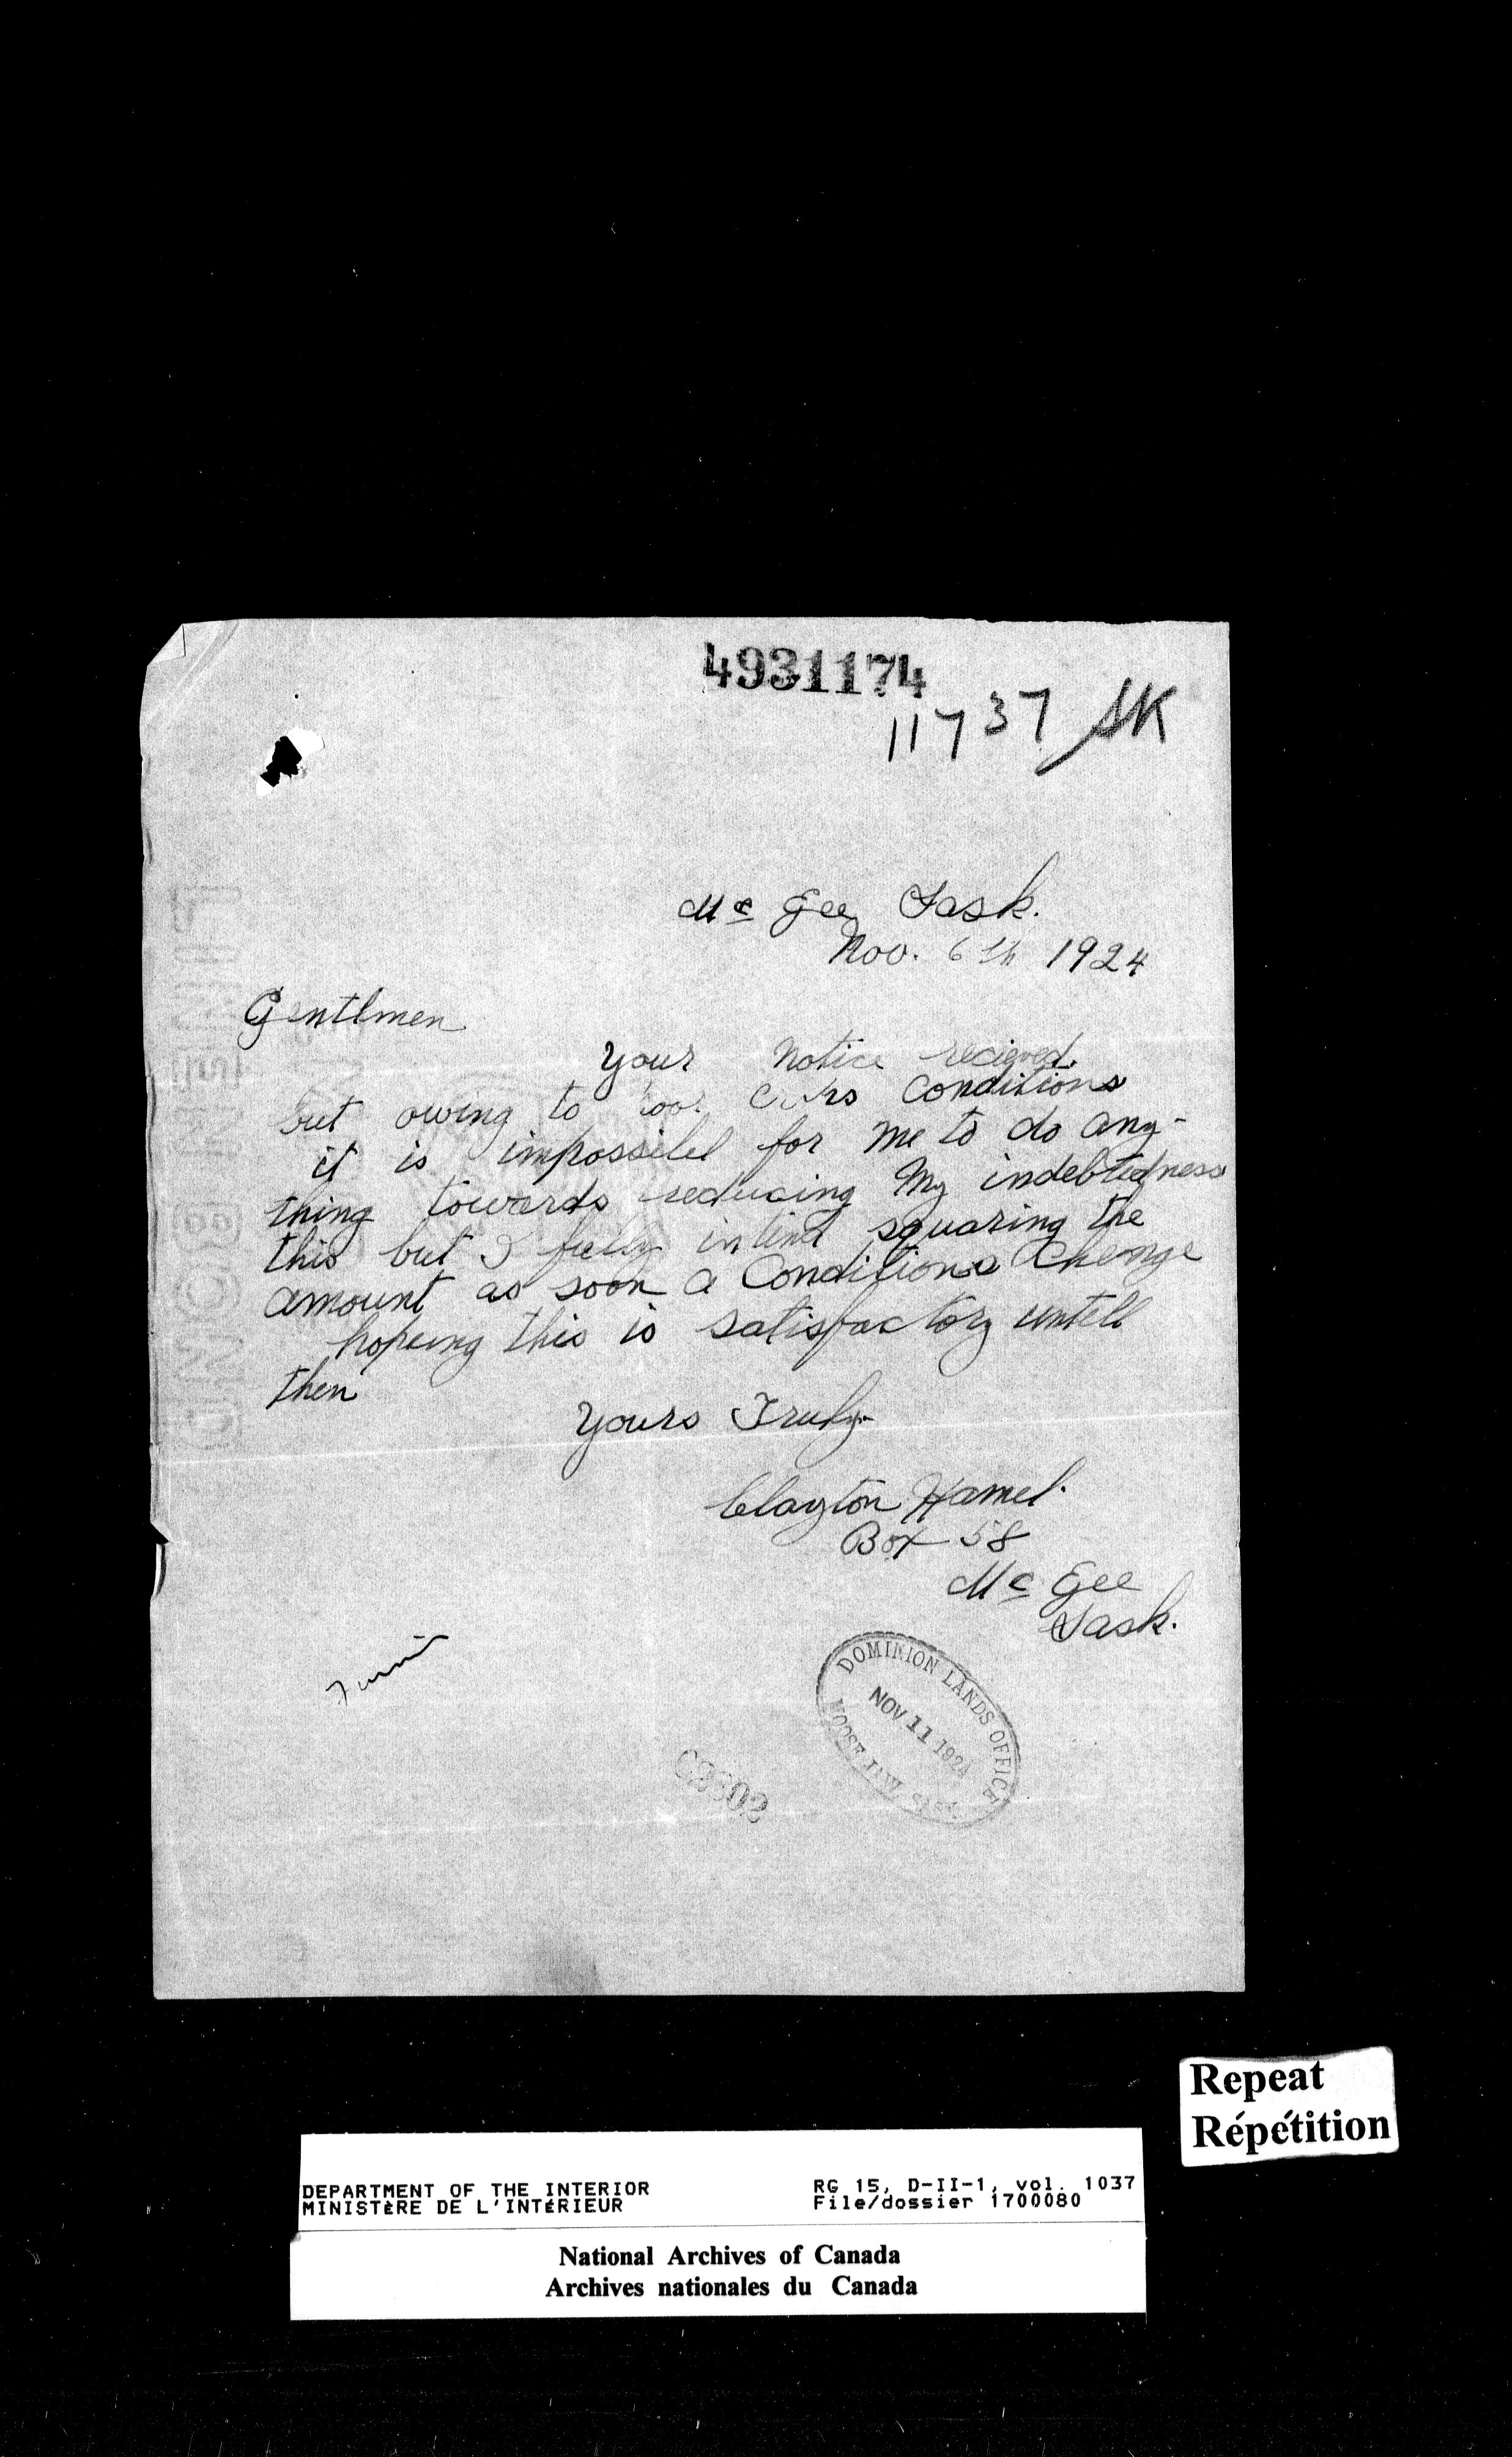 4931174
11737 SK
Mc Gee Sask.
Nov. 6th 1924
Gentlmen
Your notice recieved.
but owing to poor conditions
it is impossilel for me to do any-
thing towards reducing My indebtedness
this but I fully intend squaring the
amount as soon a Conditions Change
hopeing this is satisfactory untell
then
Yours Truly
Clayton Hamel.
Box 58
Mc Gee
Sask.
DOMINION LANDS OFFICE
NOV 11 1924
MOOSE JAW, SASK.
Repeat
Répétition
DEPARTMENT OF THE INTERIOR RG 15, D-II-1, vol. 1037
MINISTÈRE DE L'INTÉRIEUR File/dossier 1700080
National Archives of Canada
Archives nationales du Canada